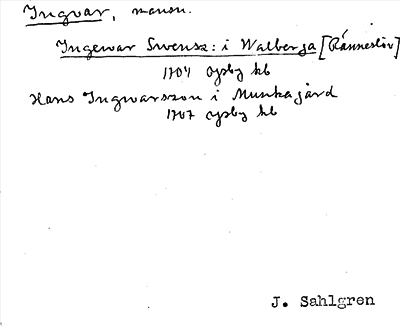 Ingvar, mansn.
Ingewar Swensz: i Walberga [Ränneslöv]
1704 Ysby kb
Hans Ingwarsson i Munkagård
1707 Ysby kb
J. Sahlgren